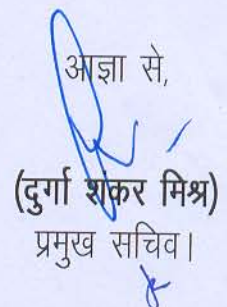 आज्ञा से,
(दुर्गा शंकर मिश्र)
प्रमुख सचिव।